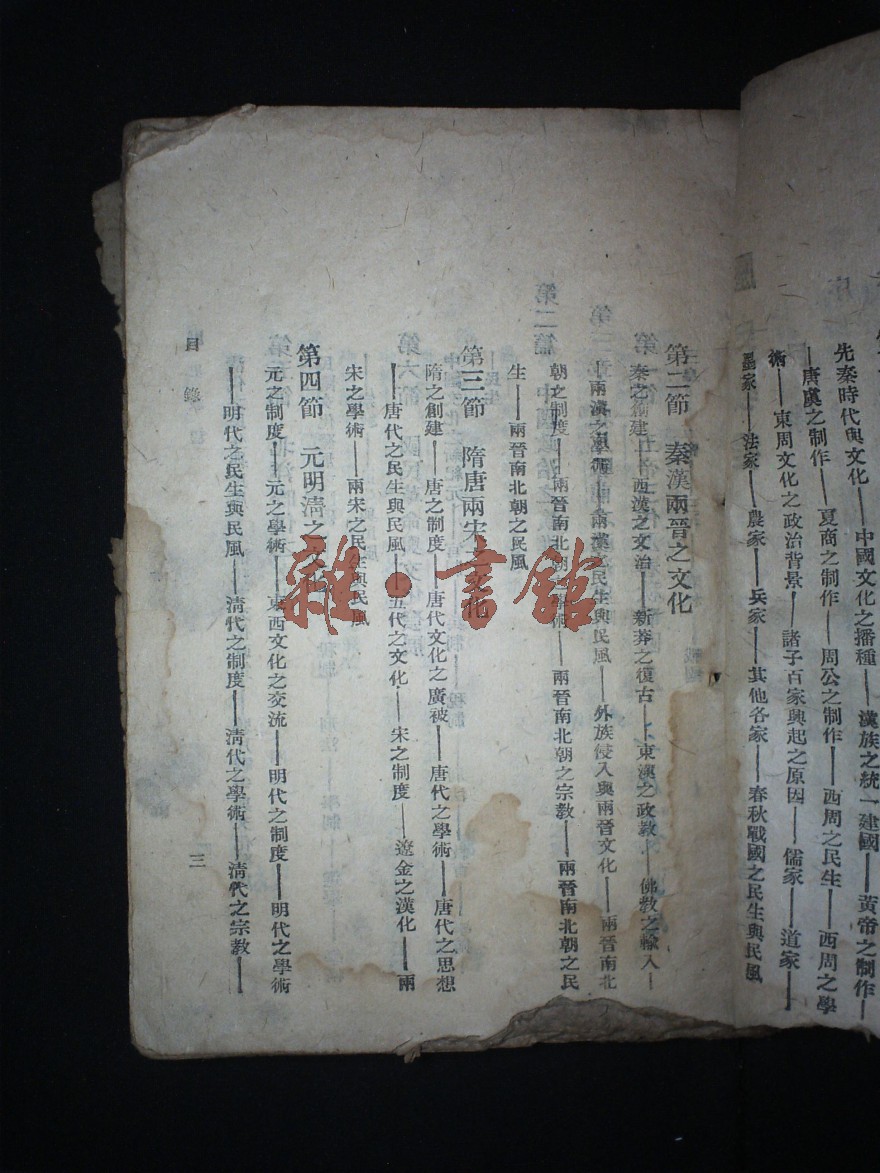 先秦時代與文化——中國文化之播種——漢族之統一建國——黃帝之制作——
唐虞之制作——夏商之制作——周公之制作——西周之民生——西周之學
術——東周文化之政治背景——諸子百家興起之原因——儒家——道家——
墨家——法家——農家——兵家——其他各家——春秋戰國之民生與民風
第二節 秦漢兩晉之文化
秦之創建——西漢之文治——新莽之復古——東漢之政教——佛教之輸入——
兩漢之學術——兩漢之民生與民風——外族侵入與兩晉文化——兩晉南北
朝之制度——兩晉南北朝之學術——兩晉南北朝之宗教——兩晉南北朝之民
生——兩晉南北朝之民風
第三節 隋唐兩宋之文化
隋之創建——唐之制度——唐代文化之廣被——唐代之學術——唐代之思想
——唐代之民生與民風——五代之文化——宋之制度——遼金之漢化——兩
宋之學術——兩宋之民生與民風
第四節 元明清之文化
元之制度——元之學術——東西文化之交流——明代之制度——明代之學術
——明代之民生與民風——清代之制度——清代之學術——清代之宗教——
目錄 三
雜·書館